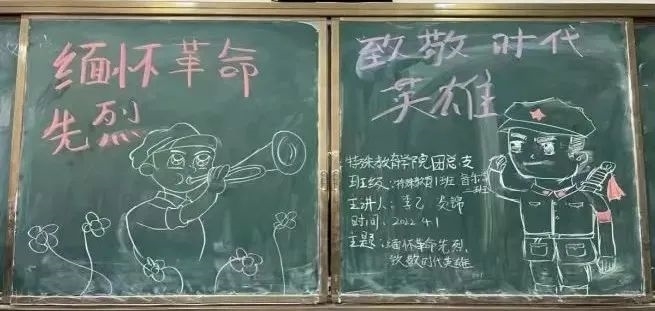 缅怀革命
先烈
致敬时代
英雄
特殊教育学院团总支
班级：特殊教育1班 音乐
班
主讲人：李乙
时间：2022 4 1
主题：缅怀革命先烈，
致敬时代英雄